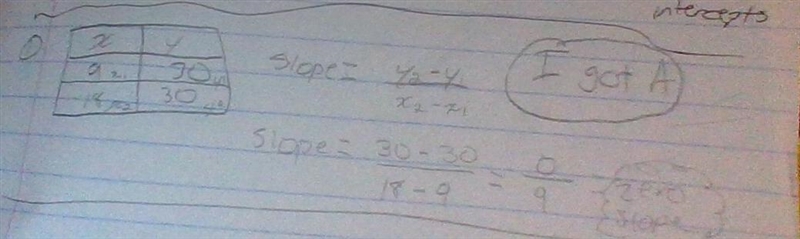 intercepts
① x y
9 x₁ 30 y₁
18 x₂ 30 y₂
Slope = y₂ - y₁ / x₂ - x₁
I got A
Slope = 30 - 30 / 18 - 9 = 0 / 9
Zero
Slope